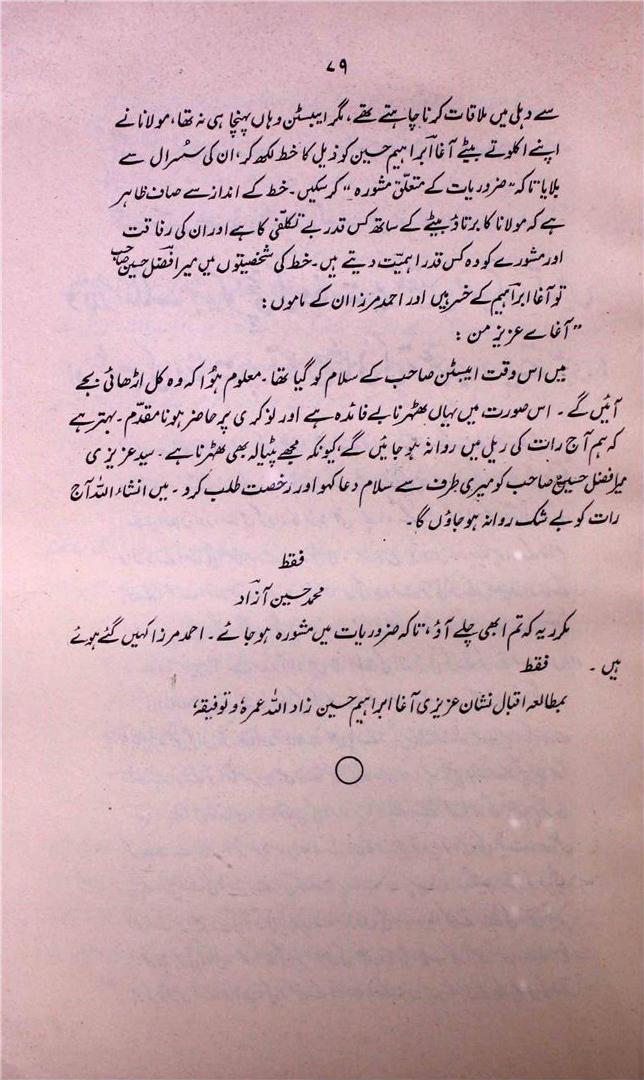 ۷۹
سے دہلی میں ملاقات کرنا چاہتے تھے، مگر ایبسٹن وہاں پہنچا ہی نہ تھا، مولانا نے
اپنے اکلوتے بیٹے آغا ابراہیم حسین کو ذیل کا خط لکھ کر، ان کی سُسرال سے
بلایا تاکہ "ضروریات کے متعلق مشورہ" کرسکیں۔ خط کے انداز سے صاف ظاہر
ہے کہ مولانا کا برتاؤ بیٹے کے ساتھ کس قدر بے تکلّفی کا ہے اور ان کی رفاقت
اور مشورے کو وہ کس قدر اہمیّت دیتے ہیں۔ خط کی شخصیتوں میں میر افضل حسین صاحب
تو آغا ابراہیم کے خسر ہیں اور احمد مرزا ان کے ماموں :
"آغاے عزیز من :
میں اس وقت ایبسٹن صاحب کے سلام کو گیا تھا۔ معلوم ہُوا کہ وہ کل اڑھائی بجے
آئیں گے۔ اس صورت میں یہاں ٹھہرنا بے فائدہ ہے اور نوکری پر حاضر ہونا مقدّم۔ بہتر ہے
کہ ہم آج رات کی ریل میں روانہ ہو جائیں گے، کیونکہ مجھے پٹیالہ بھی ٹھہرنا ہے۔ سید عزیزی
میر افضل حسین صاحب کو میری طرف سے سلام دعا کہو اور رخصت طلب کرو۔ میں انشاء اللہ آج
رات کو بے شک روانہ ہو جاؤں گا۔
فقط
محمد حسین آزاد
مکرر یہ کہ تم ابھی چلے آؤ، تاکہ ضروریات میں مشورہ ہو جائے۔ احمد مرزا کہیں گئے ہوئے
ہیں۔ فقط
بمطالعہ اقبال نشان عزیزی آغا ابراہیم حسین زاد اللہ عمرہٗ و توفیقہٗ